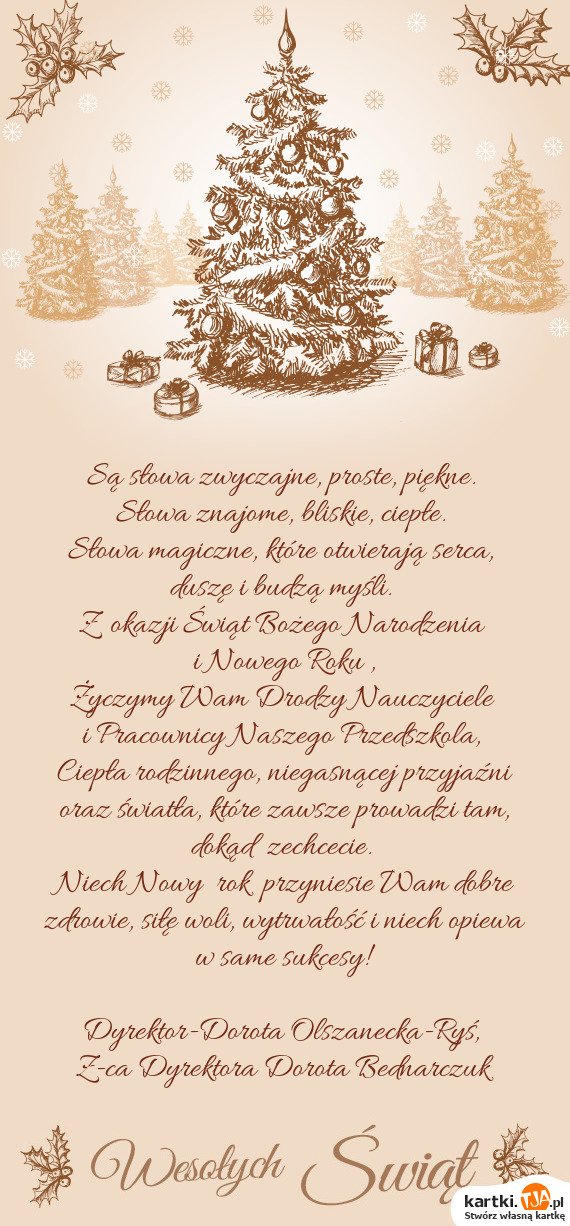 Są słowa zwyczajne, proste, piękne.
Słowa znajome, bliskie, ciepłe.
Słowa magiczne, które otwierają serca,
duszę i budzą myśli.
Z okazji Świąt Bożego Narodzenia
i Nowego Roku ,
Życzymy Wam Drodzy Nauczyciele
i Pracownicy Naszego Przedszkola,
Ciepła rodzinnego, niegasnącej przyjaźni
oraz światła, które zawsze prowadzi tam,
dokąd zechcecie.
Niech Nowy rok przyniesie Wam dobre
zdrowie, siłę woli, wytrwałość i niech opiewa
w same sukcesy!
Dyrektor-Dorota Olszanecka-Ryś,
Z-ca Dyrektora Dorota Bednarczuk
Wesołych Świąt
kartki.TJA.pl
Stwórz własną kartkę